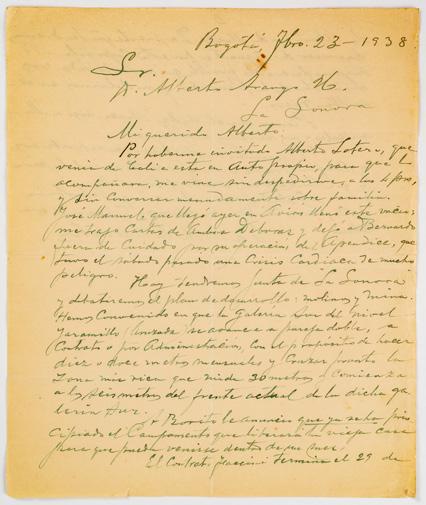 Bogotá, Fbro. 23 - 1938
Sr.
D. Alberto Arango U.
La Sonora
Mi querido Alberto
Por haberme invitado Alberto Sotero, que
venía de Cali a esta en Auto propio, para que lo
acompañara, me vine sin despedirme, a las 4 pm,
y sin conversar menudamente sobre familia.
José Manuel, que llegó ayer en Avión
me trajo Cartas de Deborar y dejó a Bernardo
fuera de Cuidado por su operación de Apéndice, que
tuvo el sábado pasado una Crisis Cardíaca de mucho
peligro.
Hoy tendremos Junta de "La Sonora"
y debatiremos el plan de desarrollo: molinos y mina.
Hemos Convenido en que la Galería Sur del Nivel
Jaramillo Gonzada se avance a pareja doble, a
Contrato o por Administración, con el propósito de hacer
diez o doce metros mensuales y Cruzar pronto la
Zona más rica que mide 30 metros y Comienza
a los seis metros del frente actual de la dicha ga-
lería Sur.
A Benito le anuncio que ya se ha prin-
cipiado el Campamento que liberará la vieja casa
para que pueda venirse dentro de un mes.
El Contrato termina el 29 de